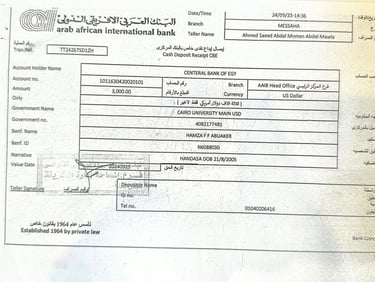 البنك العربي الافريقي الدولي
arab african international bank
24/09/23-14:36
Branch
MESSAHA
Teller Name
Ahmed Saeed Abdel Momen Abdel Mawla
رقم العملية
Tran.Ref. TT24267SD1ZH
إيصال إيداع نقدي خاص بالبنك المركزى
Cash Deposit Receipt CBE
Account Holder Name CENTRAL BANK OF EGY
Account no. 1011630420020101 رقم الحساب Branch AAIB Head Office فرع المركز الرئيسي
Amount 3,000.00 المبلغ بالأرقام Currency US Dollar
Only ( ثلاثة آلاف دولار أمريكي فقط لاغير )
Government Name CAIRO UNIVERSITY MAIN USD
Government no. 4082177481
Benf. Name HAMZA F F ABUAKER
Benf. ID N6088030
Narrative HANDASA DOB 21/8/2005
Value Date 20240925 تاريخ الحق
Teller Signature توقيع الصراف
Depositor Name
ID no.
Tel no. 01040206416
تأسس عام 1964 بقانون خاص
Established 1964 by private law
Bank Copy